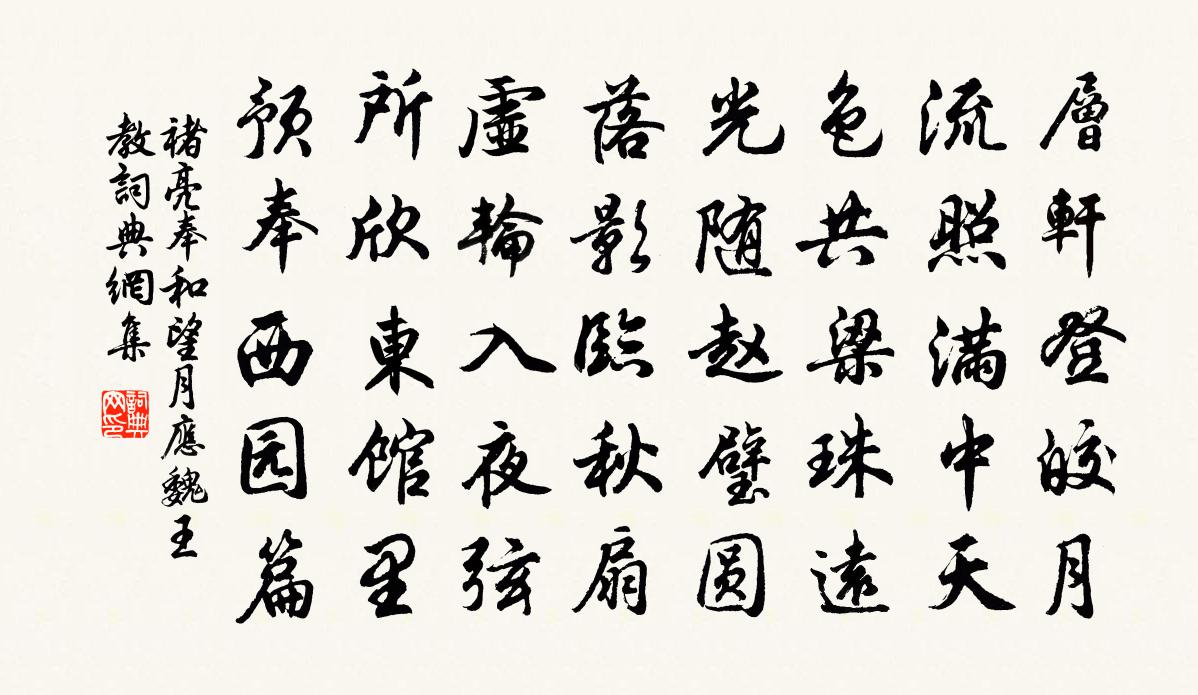 層軒登皎月
流照滿中天
色共梁珠遠
光随赵璧圆
落影臨秋扇
虛輪入夜弦
所欣東馆里
预奉西园篇
褚亮奉和望月應魏王
教詞典網集
詞典
网印